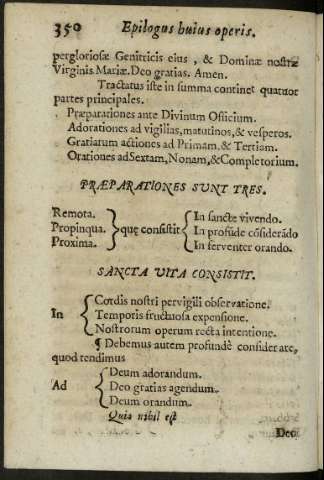 350 Epilogus huius operis.
pergloriosæ Genitricis eius, & Dominæ nostræ
Virginis Mariæ. Deo gratias. Amen.
Tractatus iste in summa continet quatuor
partes principales.
Præparationes ante Divinum Officium.
Adorationes ad vigilias, matutinos, & vesperos.
Gratiarum actiones ad Primam, & Tertiam.
Orationes ad Sextam, Nonam, & Completorium.
PRÆPARATIONES SUNT TRES.
Remota. In sancte vivendo.
Propinqua. quę consistit In profūde cōsiderādo
Proxima. In ferventer orando.
SANCTA VITA CONSISTIT.
Cordis nostri pervigili observatione.
In Temporis fructuosa expensione.
Nostrorum operum recta intentione.
¶ Debemus autem profundè considerare,
quod tendimus
Deum adorandum.
Ad Deo gratias agendum.
Deum orandum.
Quia nihil est
Deo